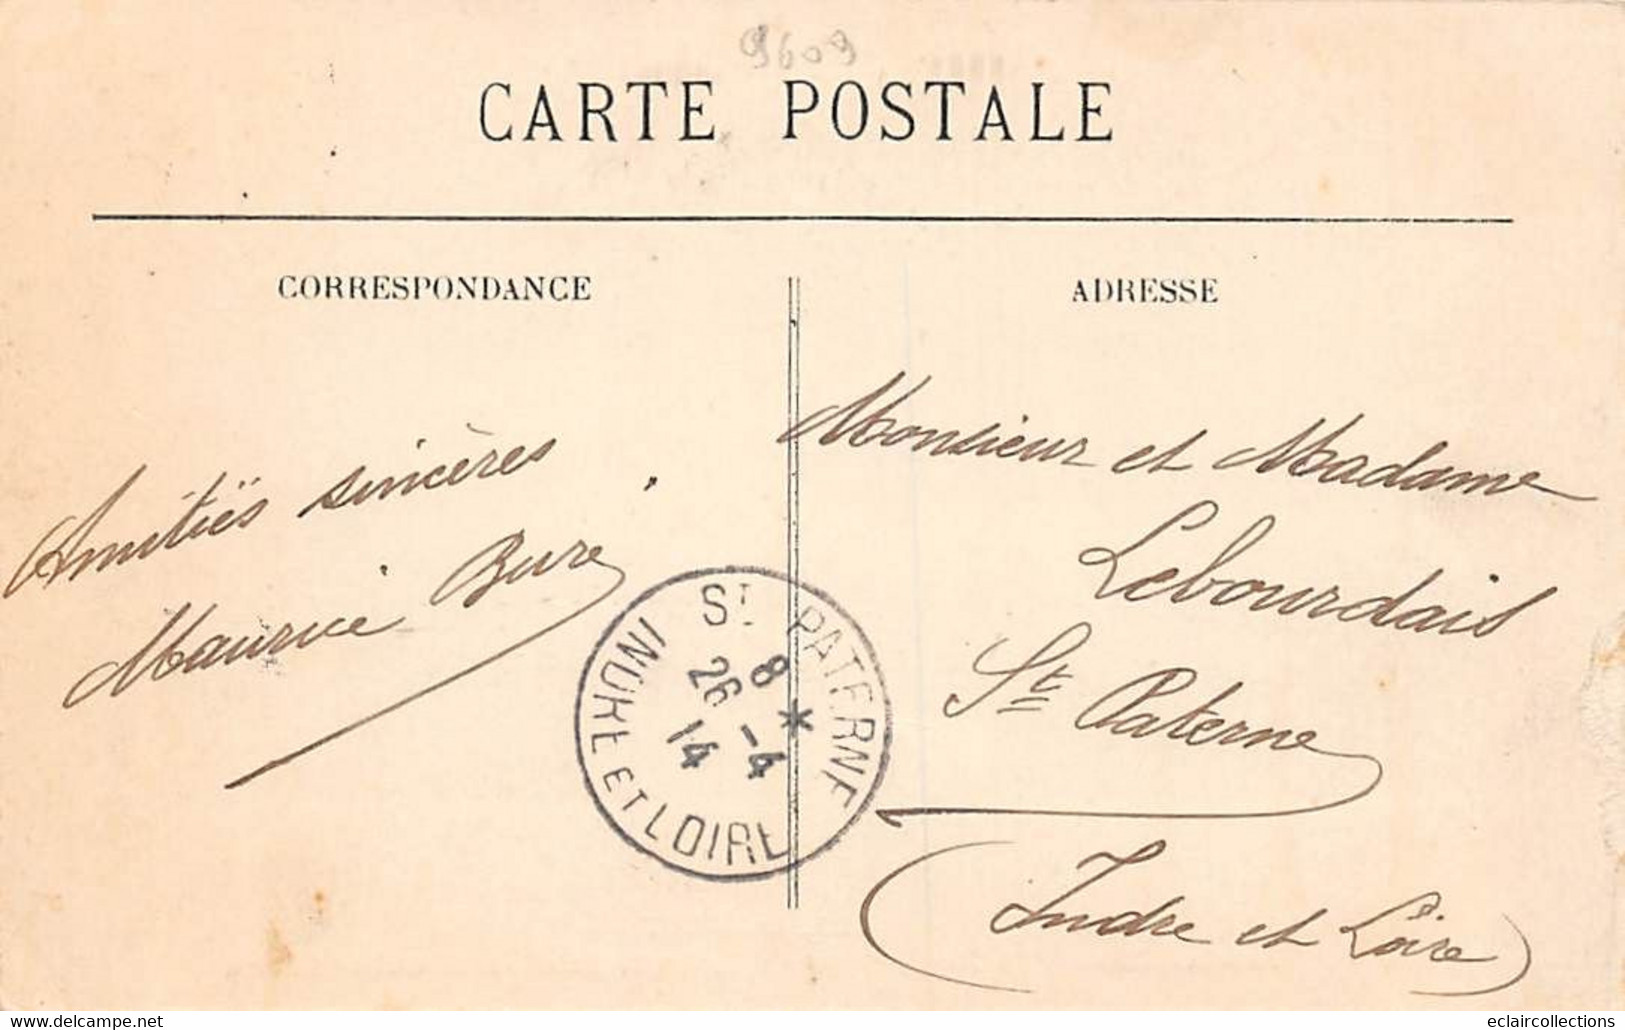 9609
CARTE POSTALE
CORRESPONDANCE
ADRESSE
Amitiés sincères
Maurice Bure
Monsieur et Madame
Lebourdais
St Paterne
(Indre et Loire)
ST PATERNE
8 *
26 -4
14
INDRE ET LOIRE
eclaircollections